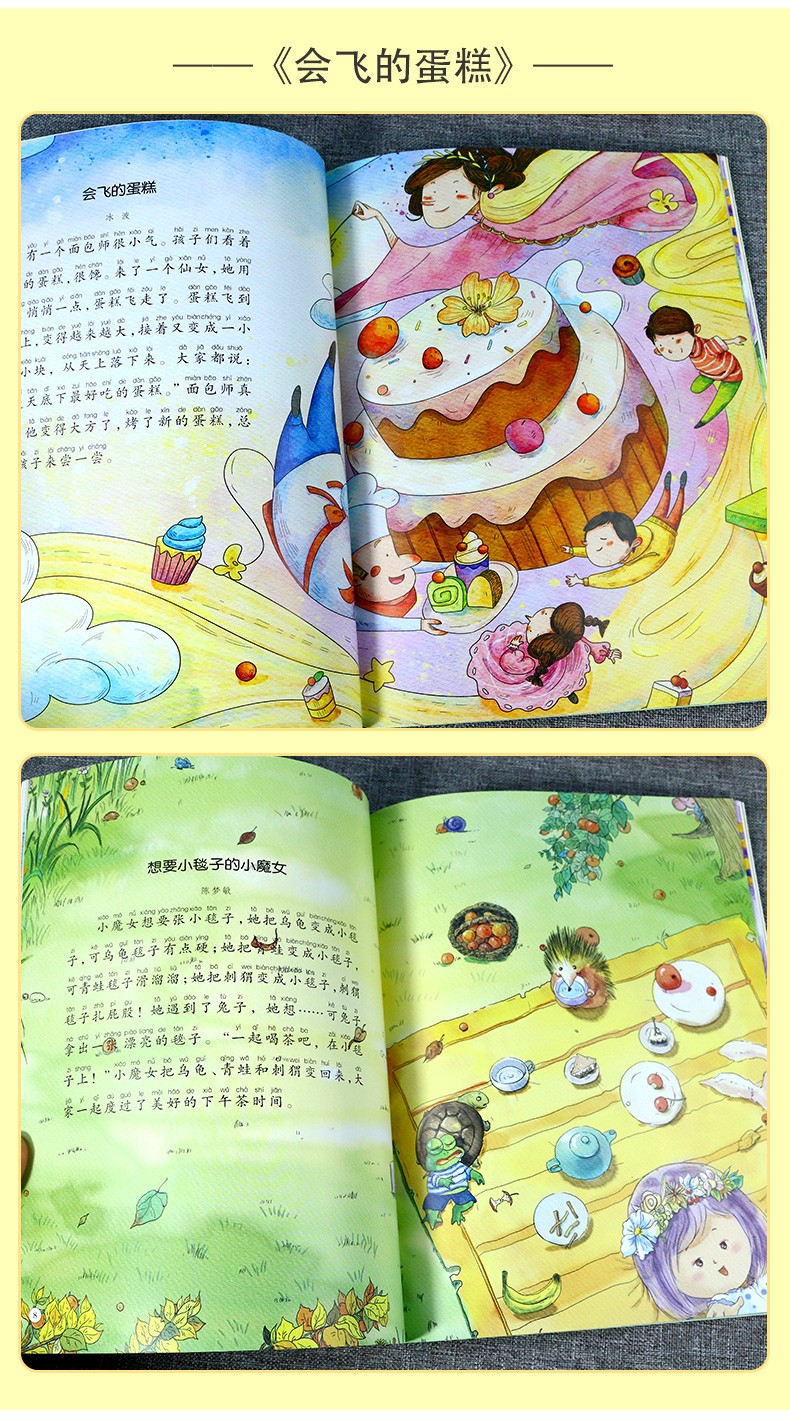 《会飞的蛋糕》
会飞的蛋糕
冰波
yǒu yí gè miàn bāo shī hěn xiǎo qì hái zi men kàn zhe
有一个面包师很小气。孩子们看着
de dàn gāo hěn chán lái le yí gè xiān nǚ tā yòng
的蛋糕，很馋。来了一个仙女，她用
qiāo qiāo yì diǎn dàn gāo fēi zǒu le dàn gāo fēi dào
悄悄一点，蛋糕飞走了。蛋糕飞到
biàn de yuè lái yuè dà jiē zhe yòu biàn chéng yì xiǎo
上，变得越来越大，接着又变成一小
xiǎo kuài cóng tiān shàng luò xià lái dà jiā dōu shuō
小块，从天上落下来。大家都说：
tiān dǐ xià zuì hǎo chī de dàn gāo miàn bāo shī zhēn
天底下最好吃的蛋糕。”面包师真
tā biàn de dà fang le kǎo le xīn de dàn gāo zǒng
他变得大方了，烤了新的蛋糕，总
hái zi lái cháng yì cháng
孩子来尝一尝。
想要小毯子的小魔女
陈梦敏
xiǎo mó nǚ xiǎng yào zhāng xiǎo tǎn zi tā bǎ wū guī biàn chéng xiǎo tǎn
小魔女想要张小毯子，她把乌龟变成小毯
zi kě wū guī tǎn zi yǒu diǎn yìng tā bǎ qīng wā biàn chéng xiǎo tǎn zi
子，可乌龟毯子有点硬；她把青蛙变成小毯子，
kě qīng wā tǎn zi huá liū liū tā bǎ cì wei biàn chéng xiǎo tǎn zi cì wei
可青蛙毯子滑溜溜；她把刺猬变成小毯子，刺猬
tǎn zi zhā pì gu tā yù dào le tù zi tā xiǎng kě tù zi
毯子扎屁股！她遇到了兔子，她想……可兔子
ná chū yì zhāng piào liang de tǎn zi yì qǐ hē chá ba zài xiǎo tǎn
拿出一张漂亮的毯子。“一起喝茶吧，在小毯
zi shang xiǎo mó nǚ bǎ wū guī qīng wā hé cì wei biàn huí lái dà
子上！”小魔女把乌龟、青蛙和刺猬变回来，大
jiā yì qǐ dù guò le měi hǎo de xià wǔ chá shí jiān
家一起度过了美好的下午茶时间。
8